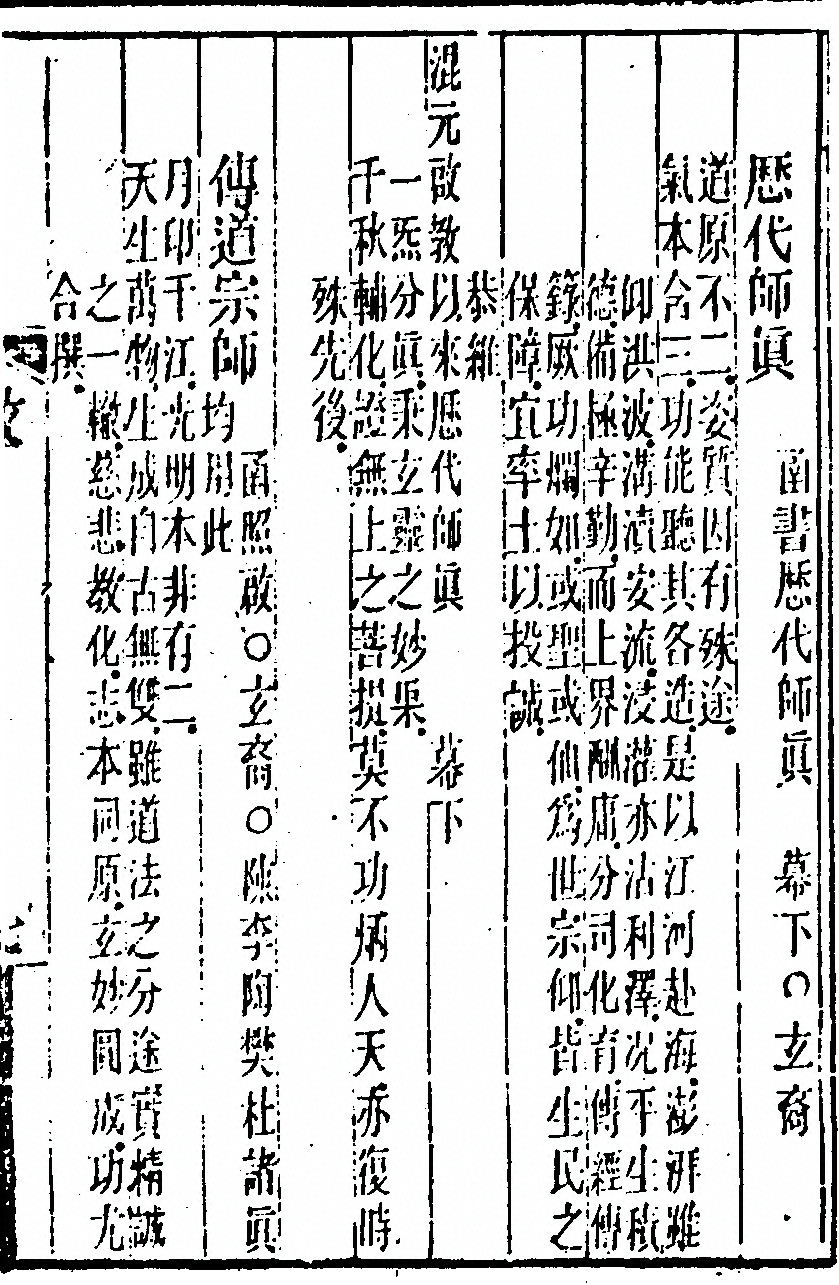 歷代師眞　函書歷代師眞　幕下〇玄裔
道原不二姿質因有殊途
氣本含三功能聽其各造是以江河赴海澎湃雖
仰洪波溝瀆安流浸灌亦沾利澤況平生積
德備極辛勤而上界酬庸分司化育傳經傳
籙厥功爛如或聖或仙爲世宗仰皆生民之
保障宜率土以投誠
恭維
混元啟教以來歷代師眞　幕下
一炁分眞秉玄靈之妙果
千秋輔化證無上之菩提莫不功炳人天亦復時
殊先後
傳道宗師　函照啟〇玄裔〇陳李陶樊杜諸眞
均用此
月印千江光明本非有二
天生萬物生成自古無雙雖道法之分途實精誠
之一轍慈悲教化志本同原玄妙圓成功尤
合撰